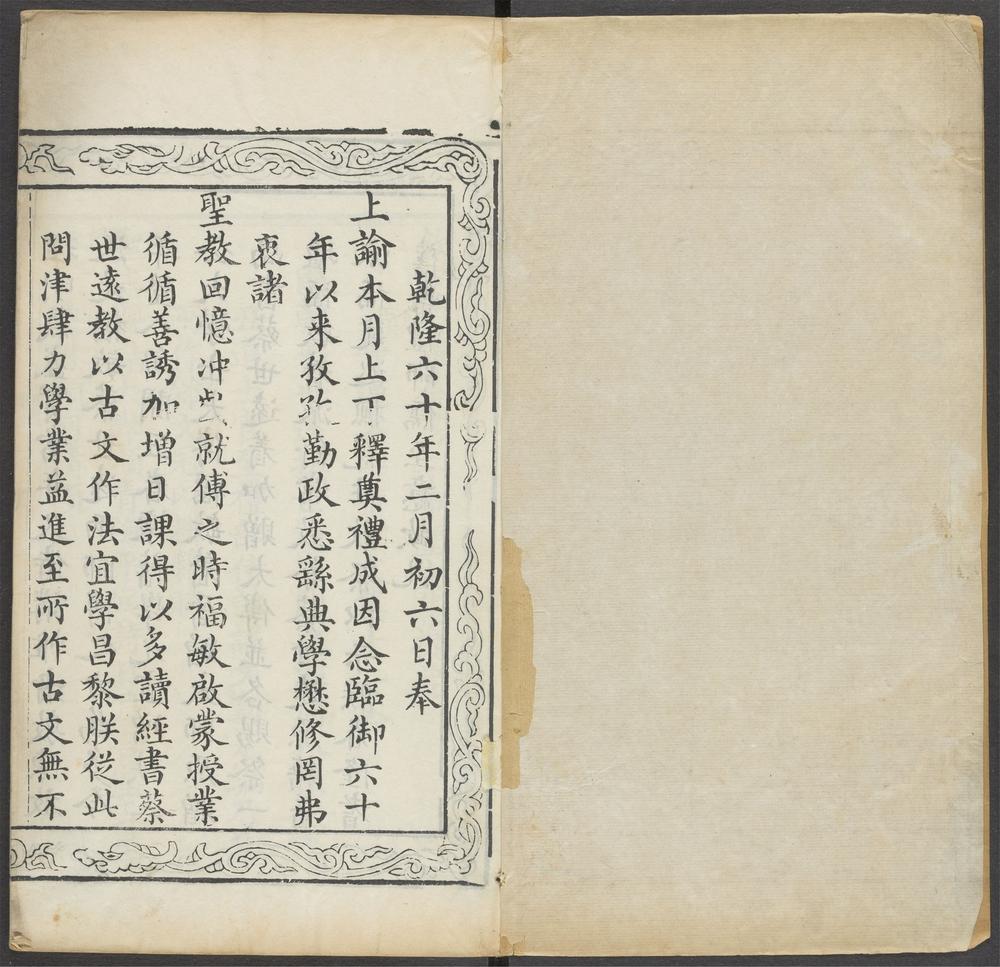 乾隆六十年二月初六日奉
上諭本月上丁釋奠禮成因念臨御六十
年以来孜孜勤政悉繇典學懋修罔弗
衷諸
聖教回憶冲齡就傅之時福敏啟蒙授業
循循善誘加增日課得以多讀經書蔡
世遠教以古文作法宜學昌黎朕從此
問津肆力學業益進至所作古文無不